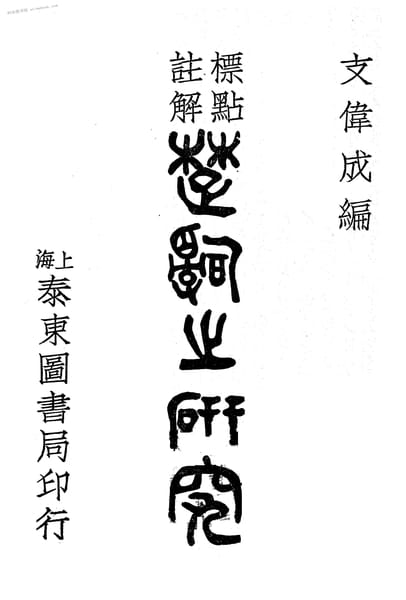 支偉成編
標點
註解
楚詞之研究
上海
泰東圖書局印行